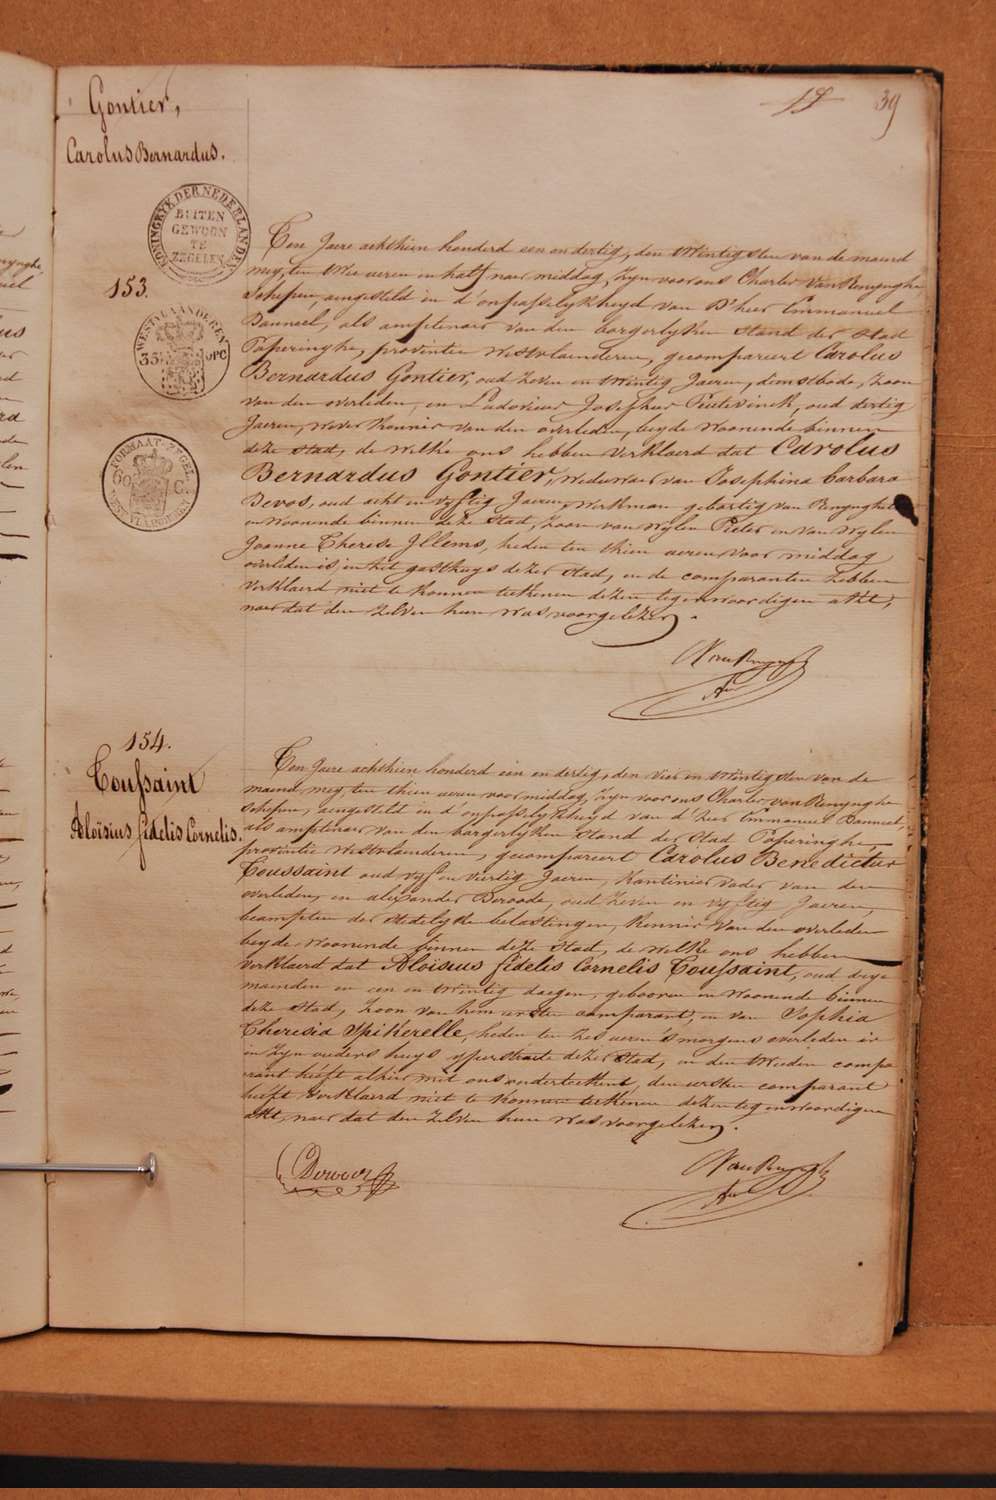 39
Gontier,
Carolus Bernardus.
KONINGRYK DER NEDERLANDEN
BUITEN
GEWOON
TE
ZEGELEN
153.
WESTVLAANDEREN
35 OPC
FORMAAT-ZEGEL
60 C.
WESTVLAANDEREN
Ten Jaere achthien honderd een en dertig, den twintigsten van de maend
mey, ten twee ueren en half naer middag, zyn voor ons Charles Van Renynghe
Schepen, aengesteld in d'onpasselykheyd van D'heer Emmanuel
Banneel, als amptenaer van den borgerlyken stand der stad
Poperinghe, provintie Westvlaenderen, gecompareert Carolus
Bernardus Gontier, oud zeven en twintig Jaeren, dienstbode, zoon
van den overleden, en Ludovicus Josephus oud dertig
Jaeren, wever kennis van den overleden, beyde woonende binnen
deze stad, de welke ons hebben verklaerd dat Carolus
Bernardus Gontier, weduwaer van Josephina Barbara
Devos, oud acht en vyftig Jaeren, werkman gebortig van Renynghelst
en woonende binnen deze stad, zoon van wylen Pieter en van wylen
Joanne Therese Illems, heden ten thien ueren voor middag
overleden is, in het gasthuys dezer stad, en de comparanten hebben
verklaerd niet te konnen teekenen dezen tegenwoordigen akt,
naer dat den zelven hun was voorgelezen.
154.
Toussaint
Aloïsius fidelis Cornelis.
Ten Jaere achthien honderd een en dertig, den vier en twintigsten van de
maend mey, ten thien ueren voor middag, zyn voor ons Charles van Renynghe
schepen, aengesteld in d'onpasselykheyd van d'heer Emmanuel Banneel,
als amptenaer van den borgerlyken stand der stad Poperinghe,
provintie Westvlaenderen, gecompareert Carolus Benedictus
Toussaint oud vyf en veertig Jaeren, kantinier vader van den
overleden, en alexander Deroode, oud zeven en vyftig Jaeren,
beampten der stedelyke belastingen, kennis van den overleden
beyde woonende binnen deze stad, de welke ons hebben
verklaerd dat Aloïsius fidelis Cornelis Toussaint, oud drye
maenden en een en twintig daegen, gebooren en woonende binnen
deze stad, zoon van hem eersten comparant, en van Sophia
Theresia Spikerelle, heden ten zes ueren 's morgens overleden is
in zyn ouders huys yperstraete dezer stad, en den tweeden compa
rant heeft alhier met ons onderteekent, den eersten comparant
heeft verklaerd niet te konnen teekenen dezen tegenwoordigen
akt, naer dat den zelven hun was voorgelezen.